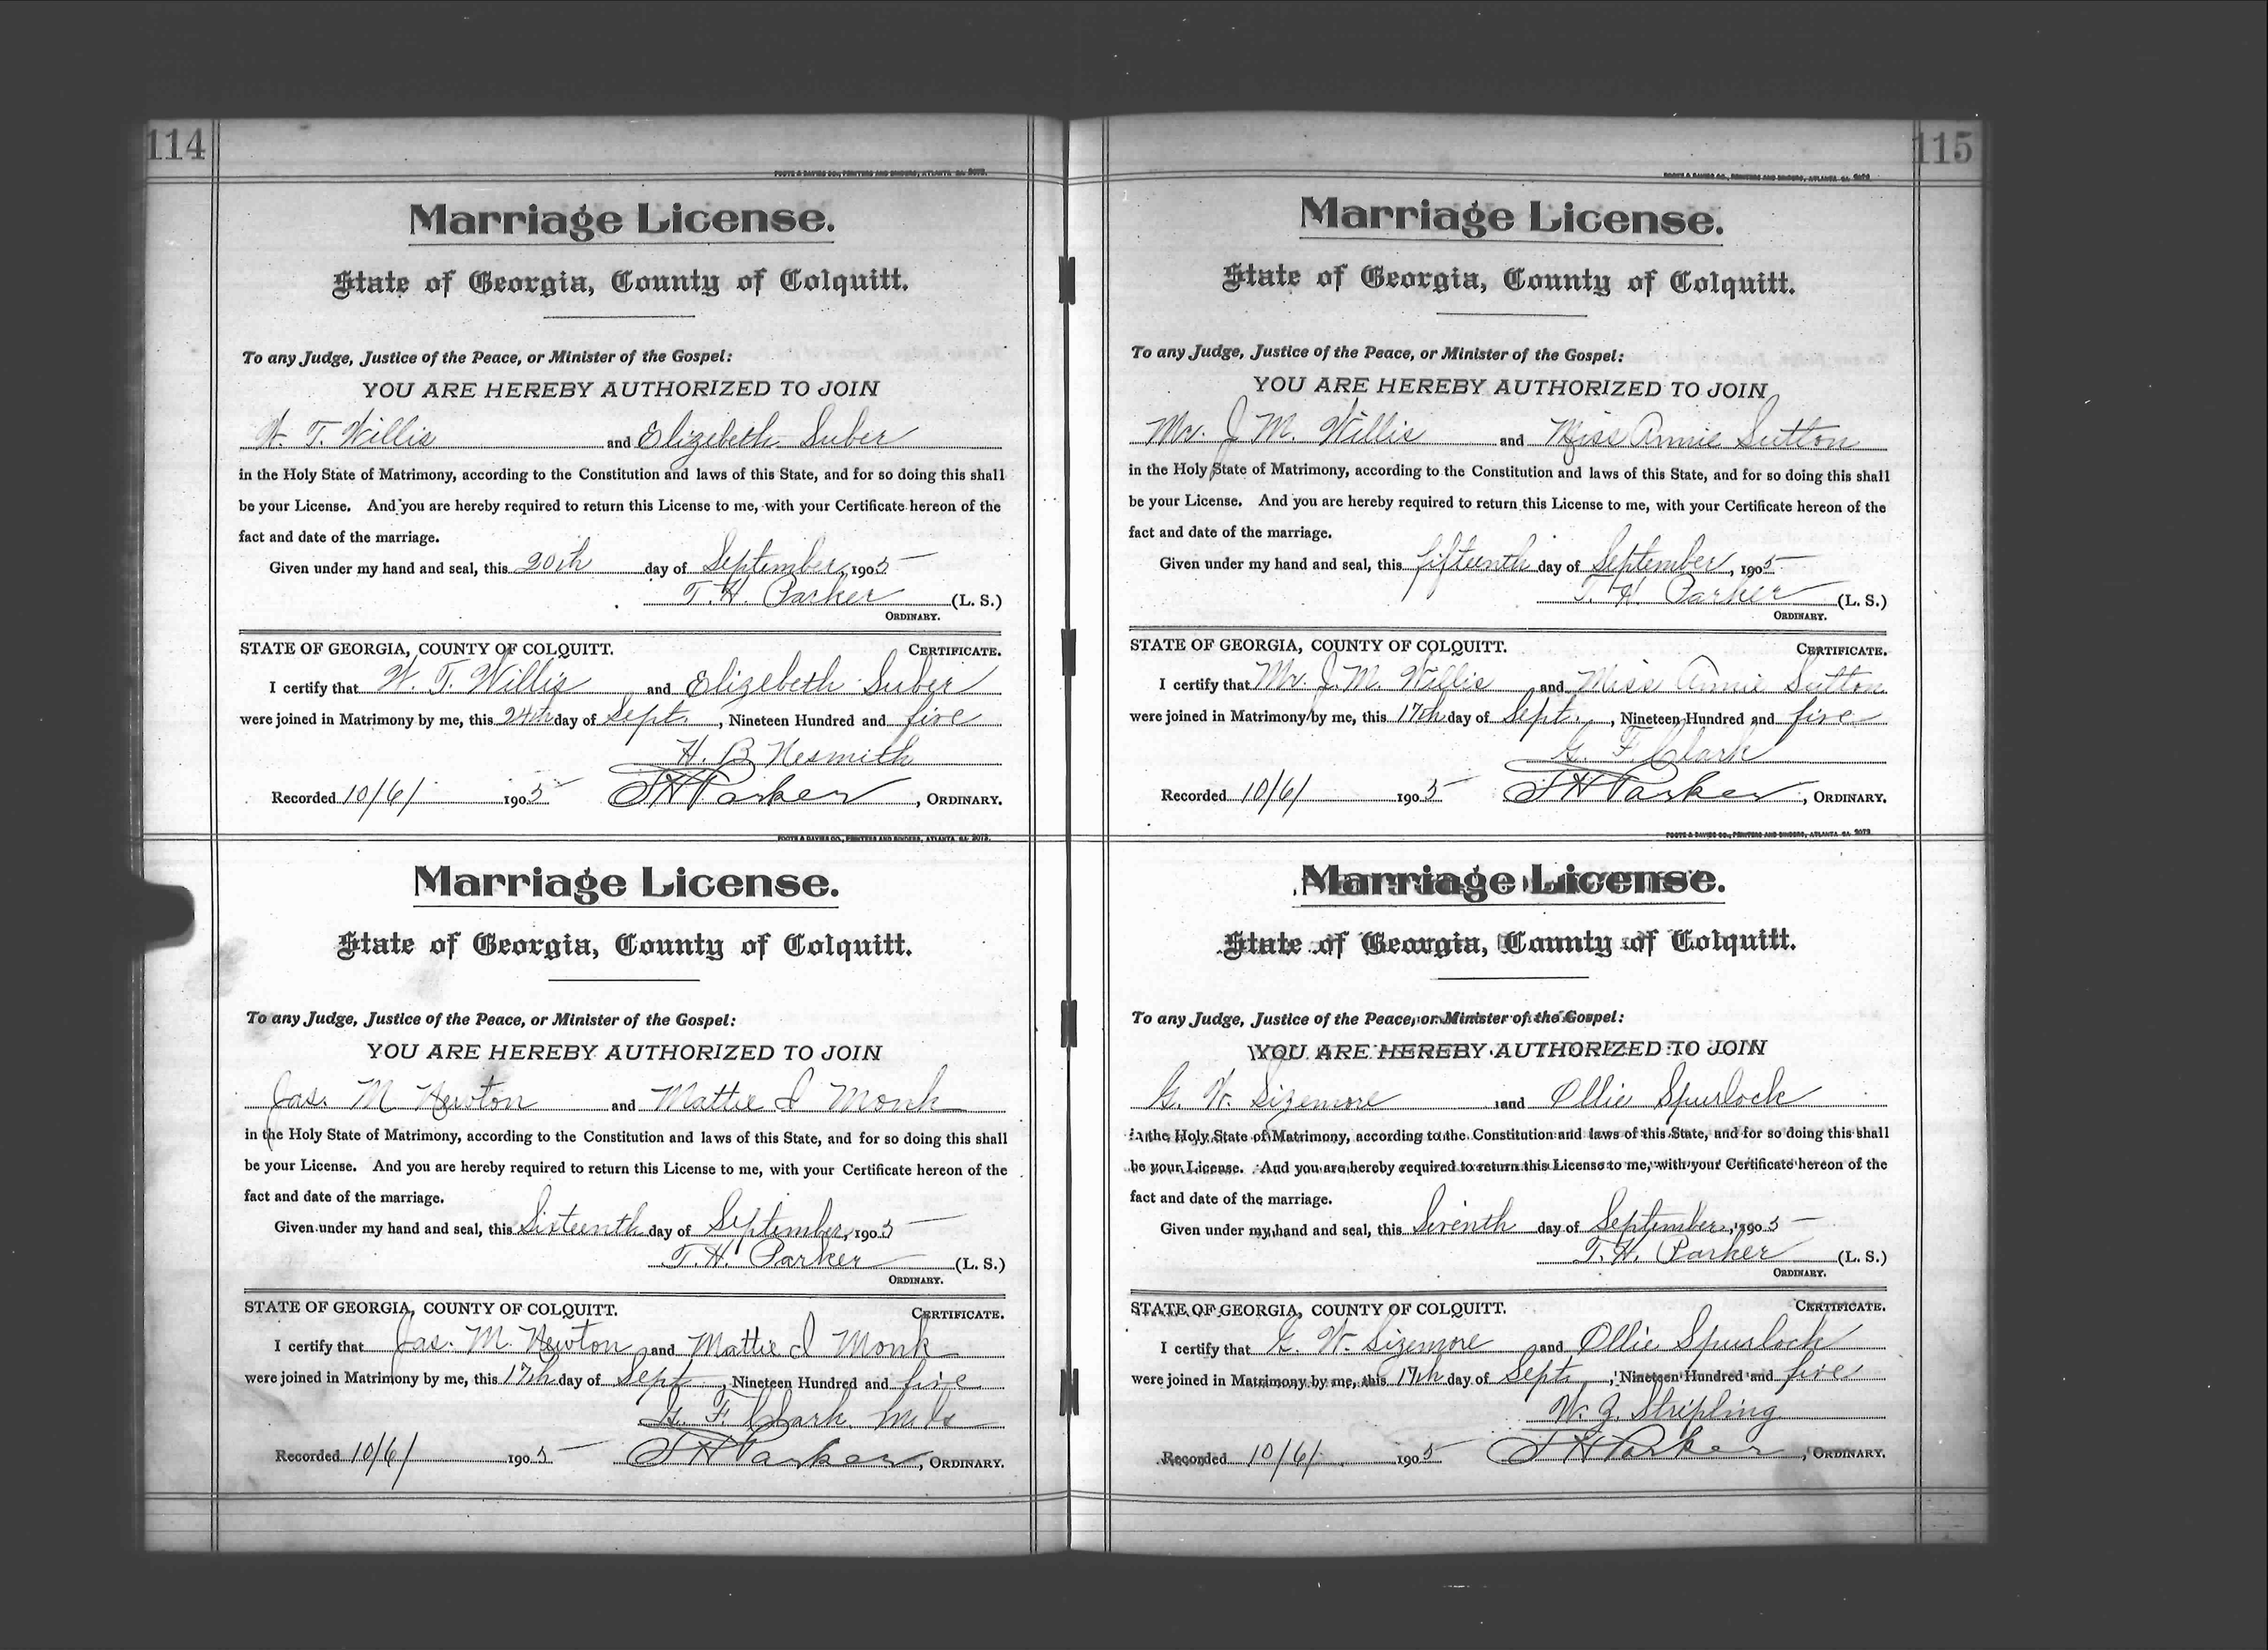 114
FOOTE & DAVIES CO., PRINTERS AND BINDERS, ATLANTA, GA.
Marriage License.
State of Georgia, County of Colquitt.
To any Judge, Justice of the Peace, or Minister of the Gospel:
YOU ARE HEREBY AUTHORIZED TO JOIN
W. T. Willis and Elizebeth Suber
in the Holy State of Matrimony, according to the Constitution and laws of this State, and for so doing this shall
be your License. And you are hereby required to return this License to me, with your Certificate hereon of the
fact and date of the marriage.
Given under my hand and seal, this 20th day of September, 1905
T. H. Parker (L. S.)
ORDINARY.
STATE OF GEORGIA, COUNTY OF COLQUITT. CERTIFICATE.
I certify that W. T. Willis and Elizebeth Suber
were joined in Matrimony by me, this 24th day of Sept., Nineteen Hundred and five
H. B. Nesmith
Recorded 10/6/ 1905 T H Parker, ORDINARY.
FOOTE & DAVIES CO., PRINTERS AND BINDERS, ATLANTA, GA.
Marriage License.
State of Georgia, County of Colquitt.
To any Judge, Justice of the Peace, or Minister of the Gospel:
YOU ARE HEREBY AUTHORIZED TO JOIN
Jas. M. Newton and Mattie I Monk
in the Holy State of Matrimony, according to the Constitution and laws of this State, and for so doing this shall
be your License. And you are hereby required to return this License to me, with your Certificate hereon of the
fact and date of the marriage.
Given under my hand and seal, this Sixteenth day of September, 1905
T. H. Parker (L. S.)
ORDINARY.
STATE OF GEORGIA, COUNTY OF COLQUITT. CERTIFICATE.
I certify that Jas. M. Newton and Mattie I Monk
were joined in Matrimony by me, this 17th day of Sept, Nineteen Hundred and five
G. F. Clark
Recorded 10/6/ 1905 T H Parker, ORDINARY.
115
FOOTE & DAVIES CO., PRINTERS AND BINDERS, ATLANTA, GA.
Marriage License.
State of Georgia, County of Colquitt.
To any Judge, Justice of the Peace, or Minister of the Gospel:
YOU ARE HEREBY AUTHORIZED TO JOIN
Mr. J M. Willis and Miss Annie Sutton
in the Holy State of Matrimony, according to the Constitution and laws of this State, and for so doing this shall
be your License. And you are hereby required to return this License to me, with your Certificate hereon of the
fact and date of the marriage.
Given under my hand and seal, this fifteenth day of September, 1905
T. H Parker (L. S.)
ORDINARY.
STATE OF GEORGIA, COUNTY OF COLQUITT. CERTIFICATE.
I certify that Mr. J. M. Willis and Miss Annie Sutton
were joined in Matrimony by me, this 17th day of Sept., Nineteen Hundred and five
G. F. Clark
Recorded 10/6/ 1905 T H Parker, ORDINARY.
FOOTE & DAVIES CO., PRINTERS AND BINDERS, ATLANTA, GA.
Marriage License.
State of Georgia, County of Colquitt.
To any Judge, Justice of the Peace, or Minister of the Gospel:
YOU ARE HEREBY AUTHORIZED TO JOIN
G. W. Sizemore and Ollie Spurlock
in the Holy State of Matrimony, according to the Constitution and laws of this State, and for so doing this shall
be your License. And you are hereby required to return this License to me, with your Certificate hereon of the
fact and date of the marriage.
Given under my hand and seal, this Seventh day of September, 1905
T. H. Parker (L. S.)
ORDINARY.
STATE OF GEORGIA, COUNTY OF COLQUITT. CERTIFICATE.
I certify that G. W. Sizemore and Ollie Spurlock
were joined in Matrimony by me, this 17th day of Sept., Nineteen Hundred and five
W. J. Stripling
Recorded 10/6/ 1905 T H Parker, ORDINARY.